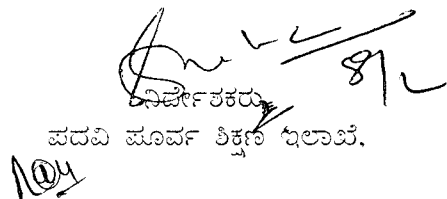 8/2
ನಿರ್ದೇಶಕರು
ಪದವಿ ಪೂರ್ವ ಶಿಕ್ಷಣ ಇಲಾಖೆ.